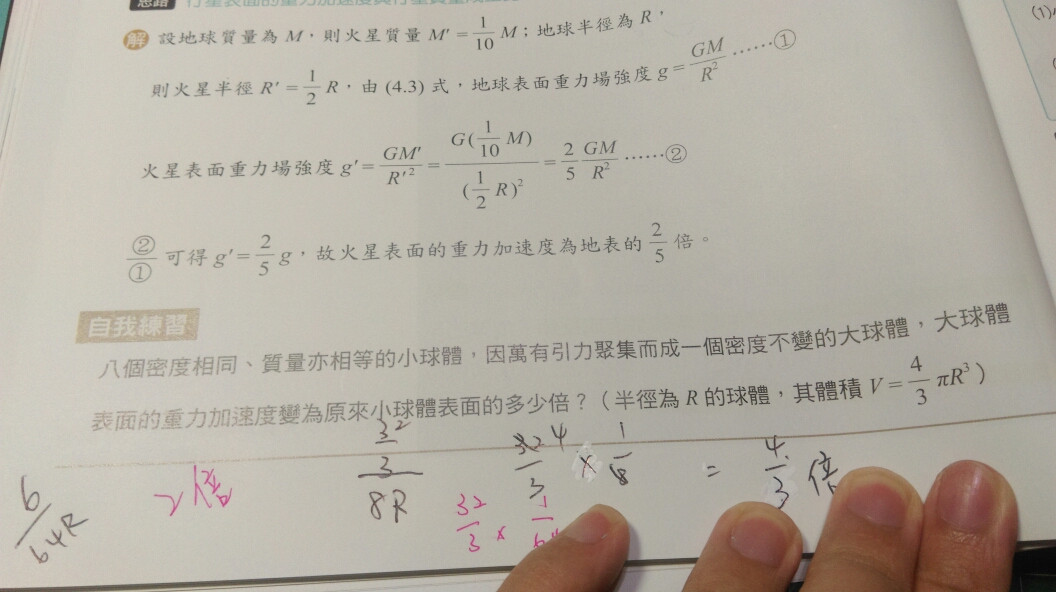 思路 行星表面的重力加速度與行星質量
解 設地球質量為 M，則火星質量 M′ = 1/10 M；地球半徑為 R，
則火星半徑 R′ = 1/2 R，由 (4.3) 式，地球表面重力場強度 g = GM/R² ……①
火星表面重力場強度 g′ = GM′/R′² = G(1/10 M)/(1/2 R)² = 2/5 GM/R² ……②
②/① 可得 g′ = 2/5 g，故火星表面的重力加速度為地表的 2/5 倍。
自我練習
八個密度相同、質量亦相等的小球體，因萬有引力聚集而成一個密度不變的大球體，大球體
表面的重力加速度變為原來小球體表面的多少倍？（半徑為 R 的球體，其體積 V = 4/3 πR³）
6/64R
2倍
8R
32/3 × 1/8 = 4/3 倍
32/3 ×
(1)